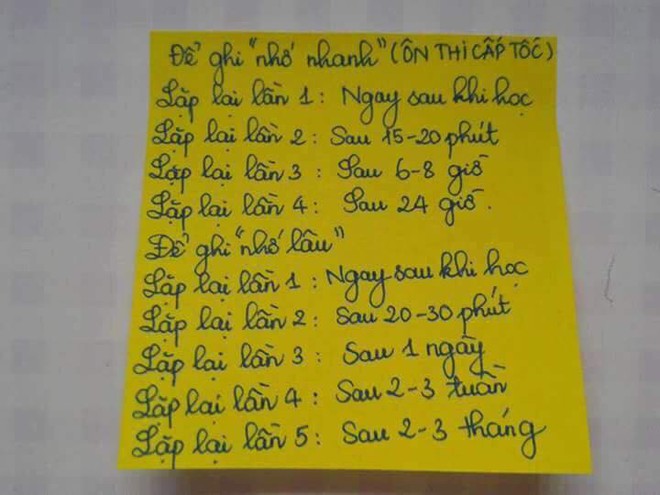 Để ghi "nhớ nhanh" (ÔN THI CẤP TỐC)
Lặp lại lần 1: Ngay sau khi học
Lặp lại lần 2: Sau 15-20 phút
Lặp lại lần 3: Sau 6-8 giờ
Lặp lại lần 4: Sau 24 giờ.
Để ghi "nhớ lâu"
Lặp lại lần 1: Ngay sau khi học
Lặp lại lần 2: Sau 20-30 phút
Lặp lại lần 3: Sau 1 ngày
Lặp lại lần 4: Sau 2-3 tuần
Lặp lại lần 5: Sau 2-3 tháng